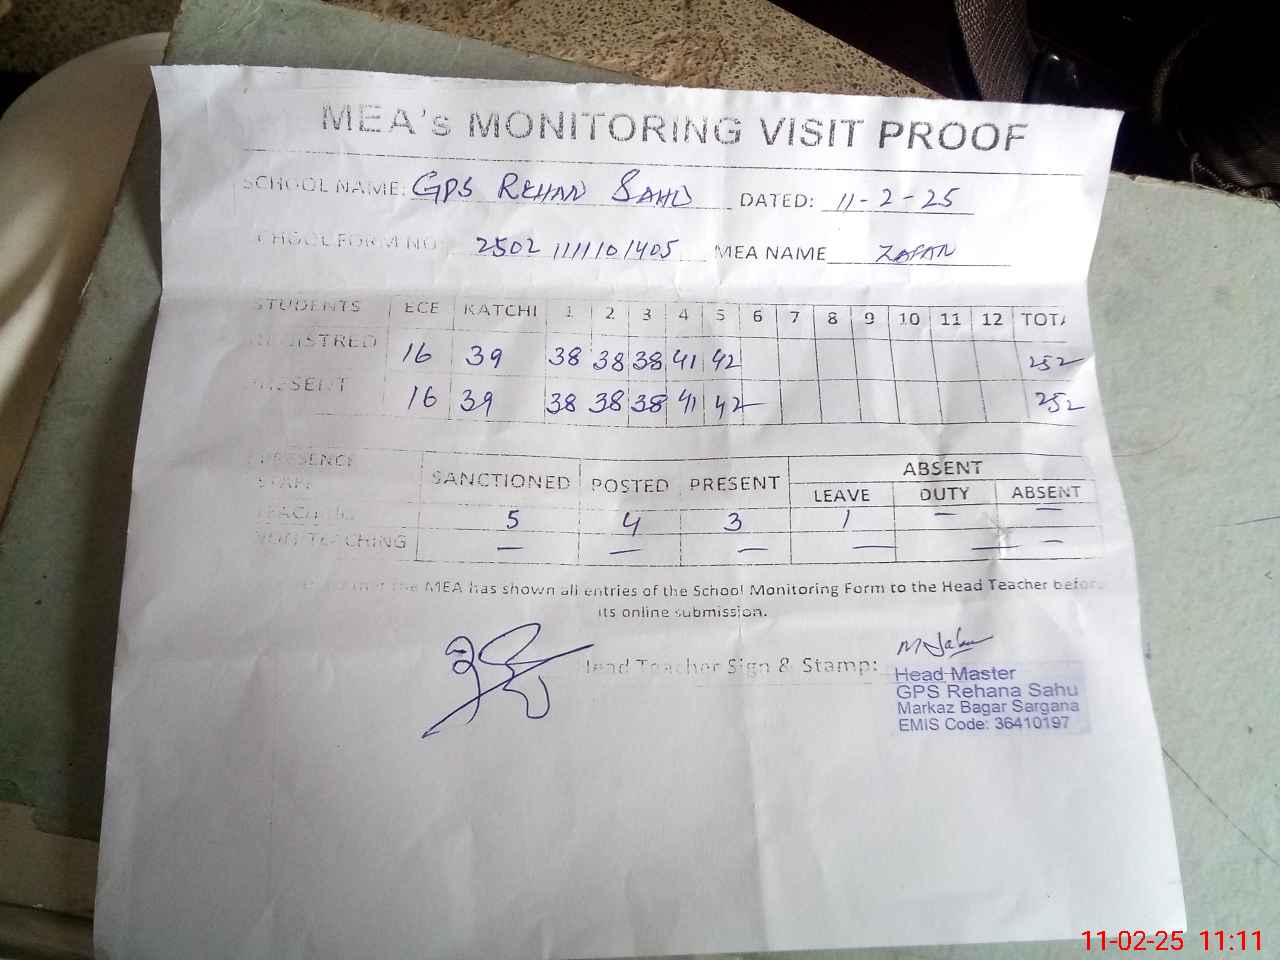 MEA's MONITORING VISIT PROOF
SCHOOL NAME: GPS REHAN SAHU DATED: 11-2-25
SCHOOL FORM NO 2502 111110 1405 MEA NAME ZAFAR
STUDENTS ECE KATCHI 1 2 3 4 5 6 7 8 9 10 11 12 TOTA
REGISTRED 16 39 38 38 38 41 42 252
PRESENT 16 39 38 38 38 41 42 252
PRESENCE STAFF SANCTIONED POSTED PRESENT ABSENT
LEAVE DUTY ABSENT
TEACHING 5 4 3 1 — —
NON TEACHING — — — — — —
that the MEA has shown all entries of the School Monitoring Form to the Head Teacher before
its online submission.
Head Teacher Sign & Stamp:
Head Master
GPS Rehana Sahu
Markaz Bagar Sargana
EMIS Code: 36410197
11-02-25 11:11